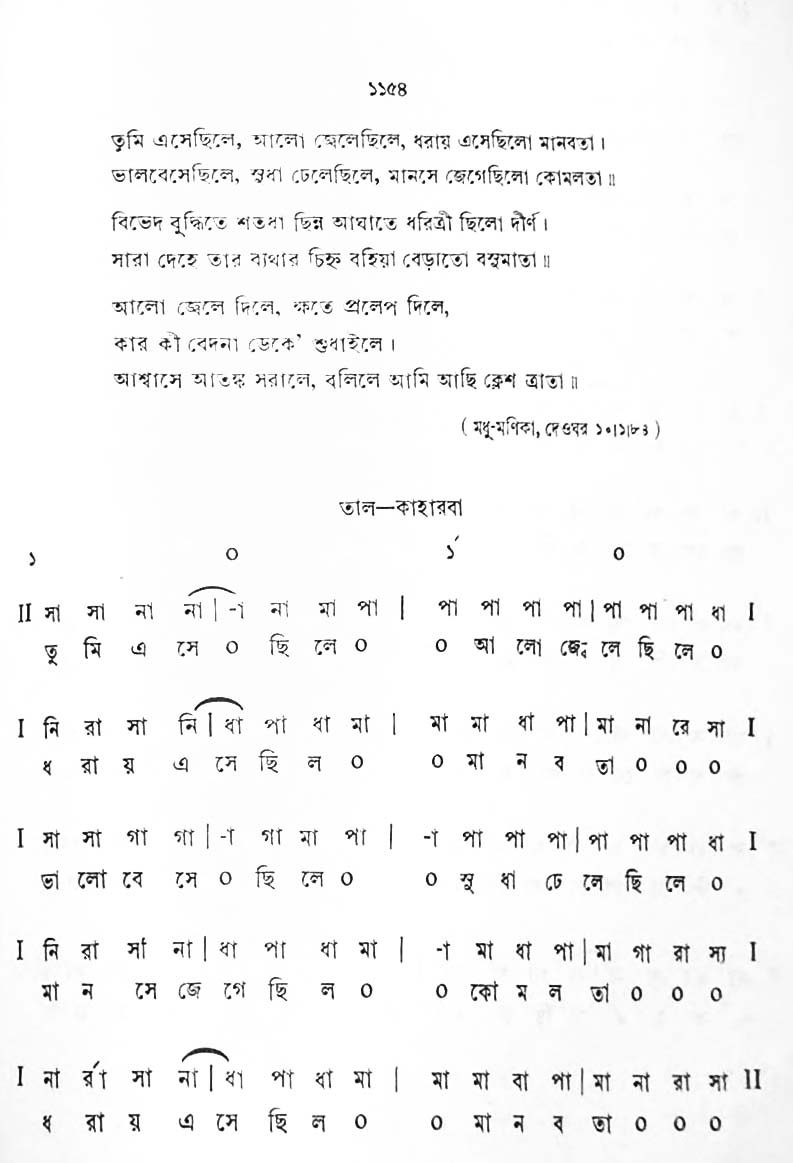 ১১৫৪
তুমি এসেছিলে, আলো জ্বেলেছিলে, ধরায় এসেছিলো মানবতা।
ভালবেসেছিলে, সুধা ঢেলেছিলে, মানসে জেগেছিলো কোমলতা॥
বিভেদ বুদ্ধিতে শতধা ছিন্ন আঘাতে ধরিত্রী ছিলো দীর্ণ।
সারা দেহে তার ব্যথার চিহ্ন বহিয়া বেড়াতো বসুমাতা॥
আলো জ্বেলে দিলে, ক্ষতে প্রলেপ দিলে,
কার কী বেদনা ডেকে’ শুধাইলে।
আশ্বাসে আতঙ্ক সরালে, বলিলে আমি আছি ক্লেশ ত্রাতা॥
( মধু-মণিকা, দেওঘর ১০।১।৮৪ )
তাল—কাহারবা
১ ০ ১́ ০
II সা সা না না | -া না মা পা | পা পা পা পা | পা পা পা ধা I
তু মি এ সে ০ ছি লে ০ ০ আ লো জ্বে লে ছি লে ০
I নি রা সা নি | ধা পা ধা মা | মা মা ধা পা | মা না রে সা I
ধ রা য় এ সে ছি ল ০ ০ মা ন ব তা ০ ০ ০
I সা সা গা গা | -া গা মা পা | -া পা পা পা | পা পা পা ধা I
ভা লো বে সে ০ ছি লে ০ ০ সু ধা ঢে লে ছি লে ০
I নি রা র্সা না | ধা পা ধা মা | -া মা ধা পা | মা গা রা সা I
মা ন সে জে গে ছি ল ০ ০ কো ম ল তা ০ ০ ০
I না র্রা সা না | ধা পা ধা মা | মা মা বা পা | মা না রা সা II
ধ রা য় এ সে ছি ল ০ ০ মা ন ব তা ০ ০ ০